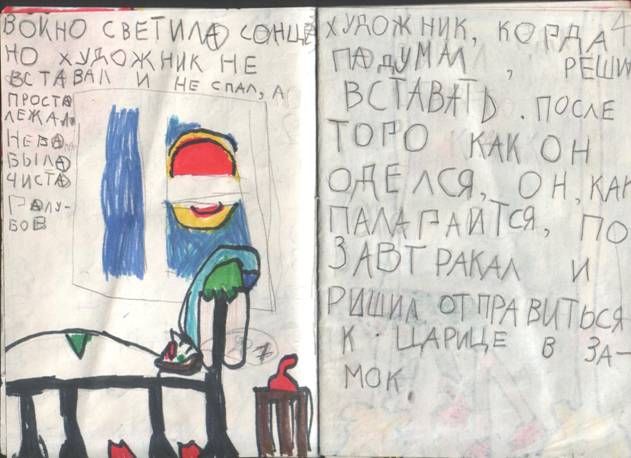 ВОКНО СВЕТИЛА СОНЦЕ
НО ХУДОЖНИК НЕ
ВСТАВАЛ И НЕ СПАЛ, А
ПРОСТА
ЛЕЖАЛ
НЕБА
БЫЛА
ЧИСТА
ГАЛУ-
БОВ
7
4
ХУДОЖНИК, КОРДА
ПАДУМАЛ, РЕШИ
ВСТАВАТЬ. ПОСЛЕ
ТОРО КАК ОН
ОДЕЛСЯ, ОН, КАК
ПАЛАГАИТСЯ, ПО
ЗАВТРАКАЛ И
РИШИЛ ОТПРАВИТЬСЯ
К ЦАРИЦЕ В ЗА-
МОК